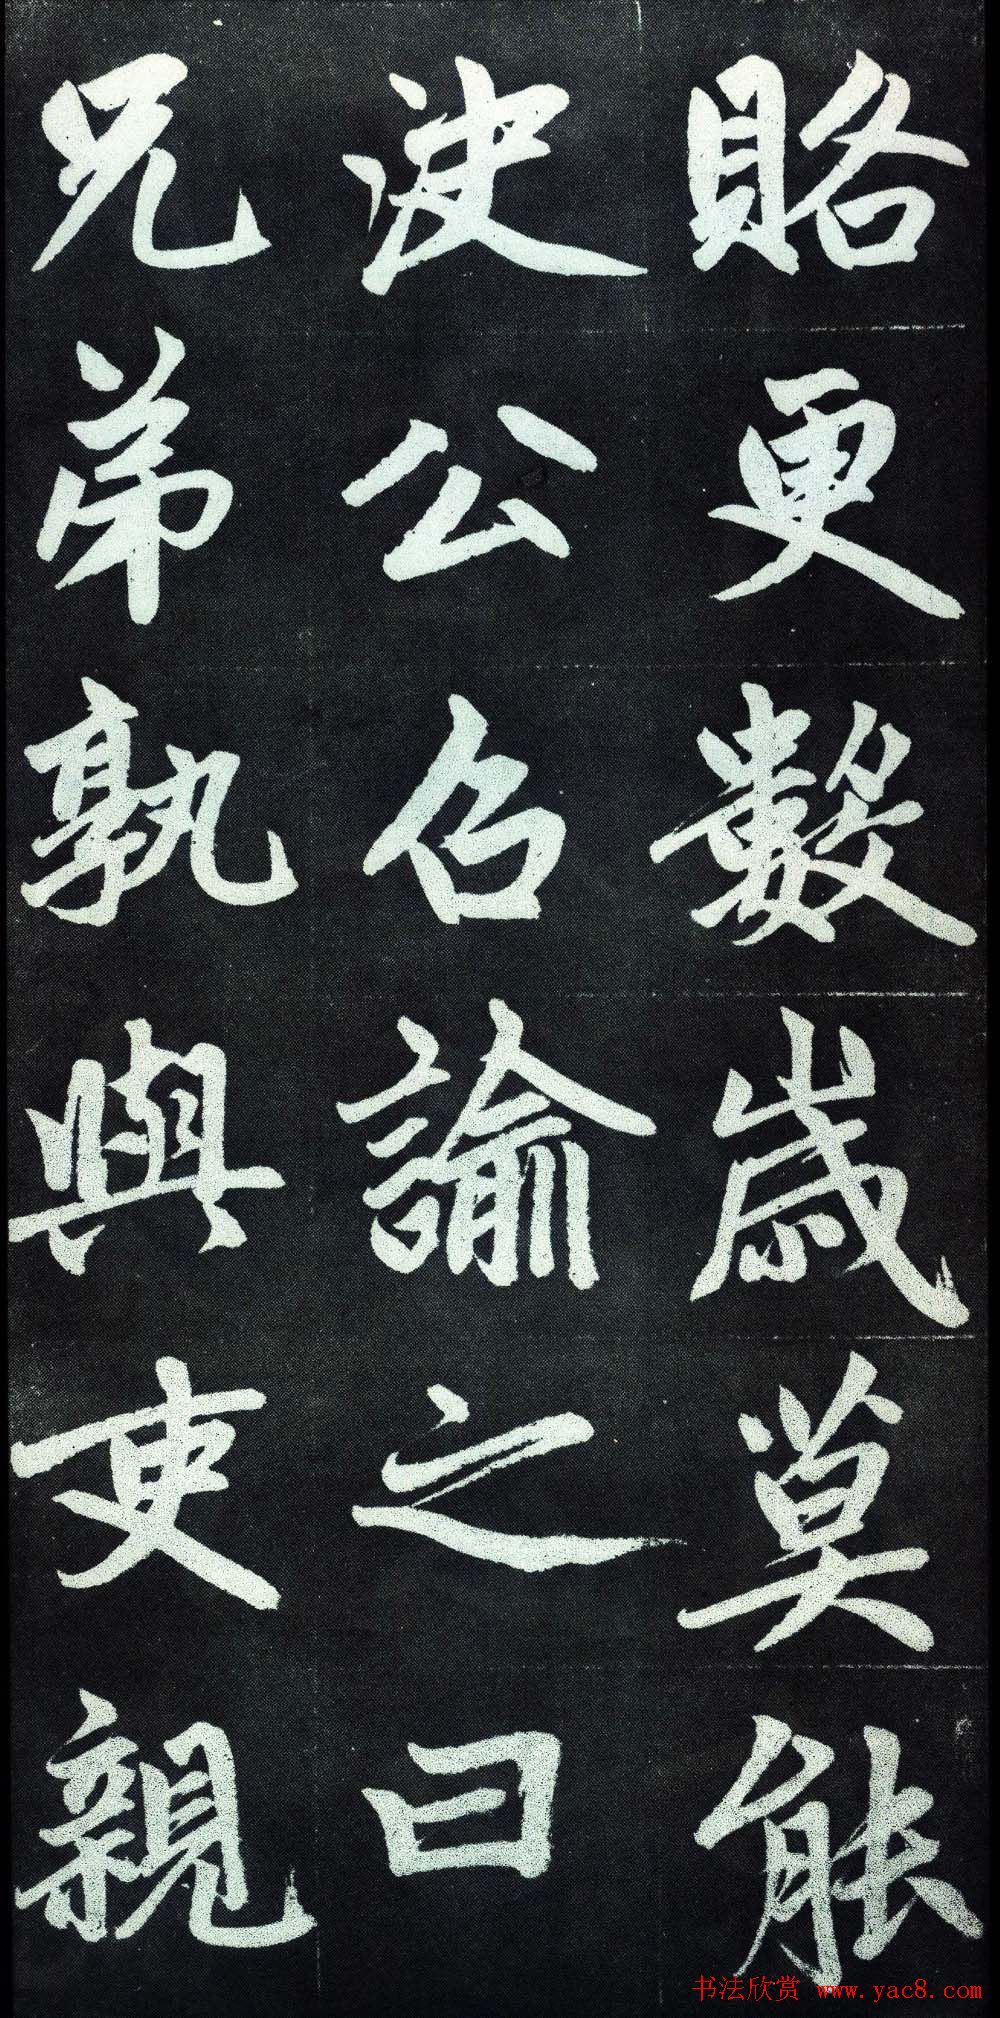 賂更數歲莫能
決公召諭之曰
兄弟孰與吏親
书法欣赏 www.yac8.com